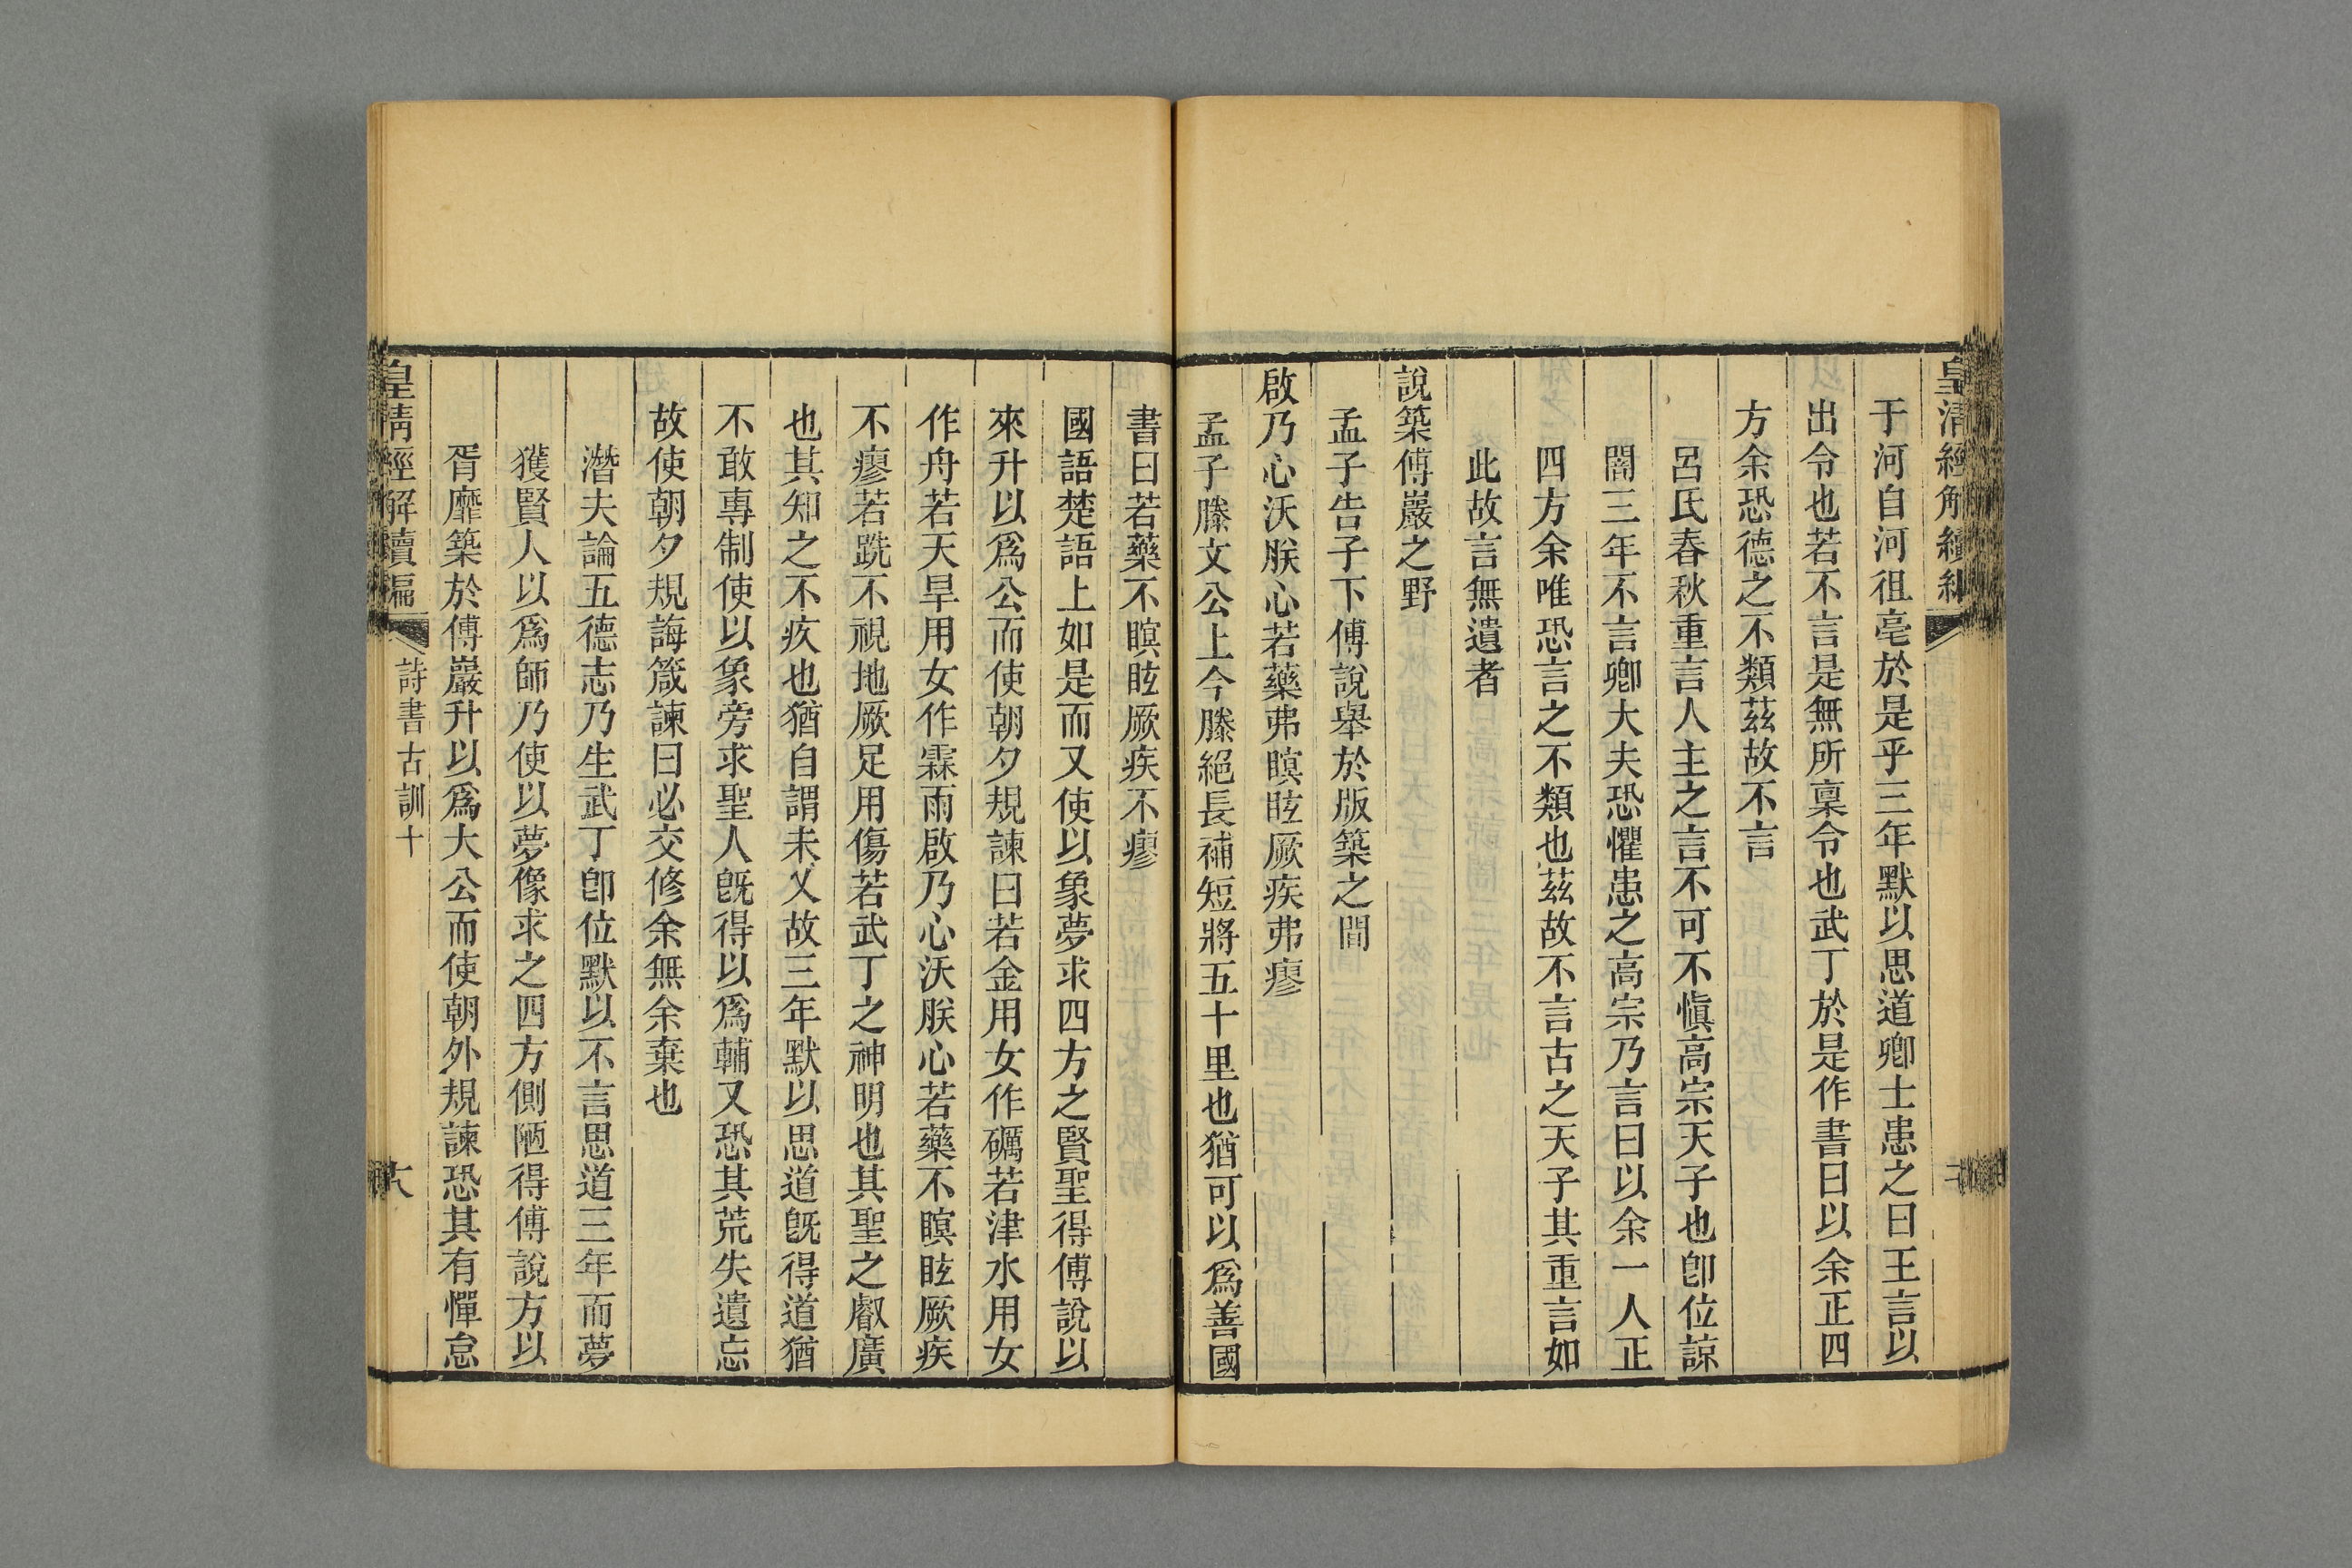 皇清經解續編
于河自河徂亳於是乎三年默以思道卿士患之曰王言以
出令也若不言是無所稟令也武丁於是作書曰以余正四
方余恐德之不類茲故不言
呂氏春秋重言人主之言不可不愼高宗天子也卽位諒
闇三年不言卿大夫恐懼患之高宗乃言曰以余一人正
四方余唯恐言之不類也茲故不言古之天子其重言如
此故言無遺者
說築傅巖之野
孟子告子下傅說舉於版築之間
啟乃心沃朕心若藥弗瞑眩厥疾弗瘳
孟子滕文公上今滕絕長補短將五十里也猶可以爲善國
書曰若藥不瞑眩厥疾不瘳
國語楚語上如是而又使以象夢求四方之賢聖得傅說以
來升以爲公而使朝夕規諫曰若金用女作礪若津水用女
作舟若天旱用女作霖雨啟乃心沃朕心若藥不瞑眩厥疾
不瘳若跣不視地厥足用傷若武丁之神明也其聖之叡廣
也其知之不疚也猶自謂未乂故三年默以思道旣得道猶
不敢專制使以象旁求聖人旣得以爲輔又恐其荒失遺忘
故使朝夕規誨箴諫曰必交修余無余棄也
潛夫論五德志乃生武丁卽位默以不言思道三年而夢
獲賢人以爲師乃使以夢像求之四方側陋得傅說方以
胥靡築於傅巖升以爲大公而使朝外規諫恐其有憚怠
皇清經解續編
詩書古訓十